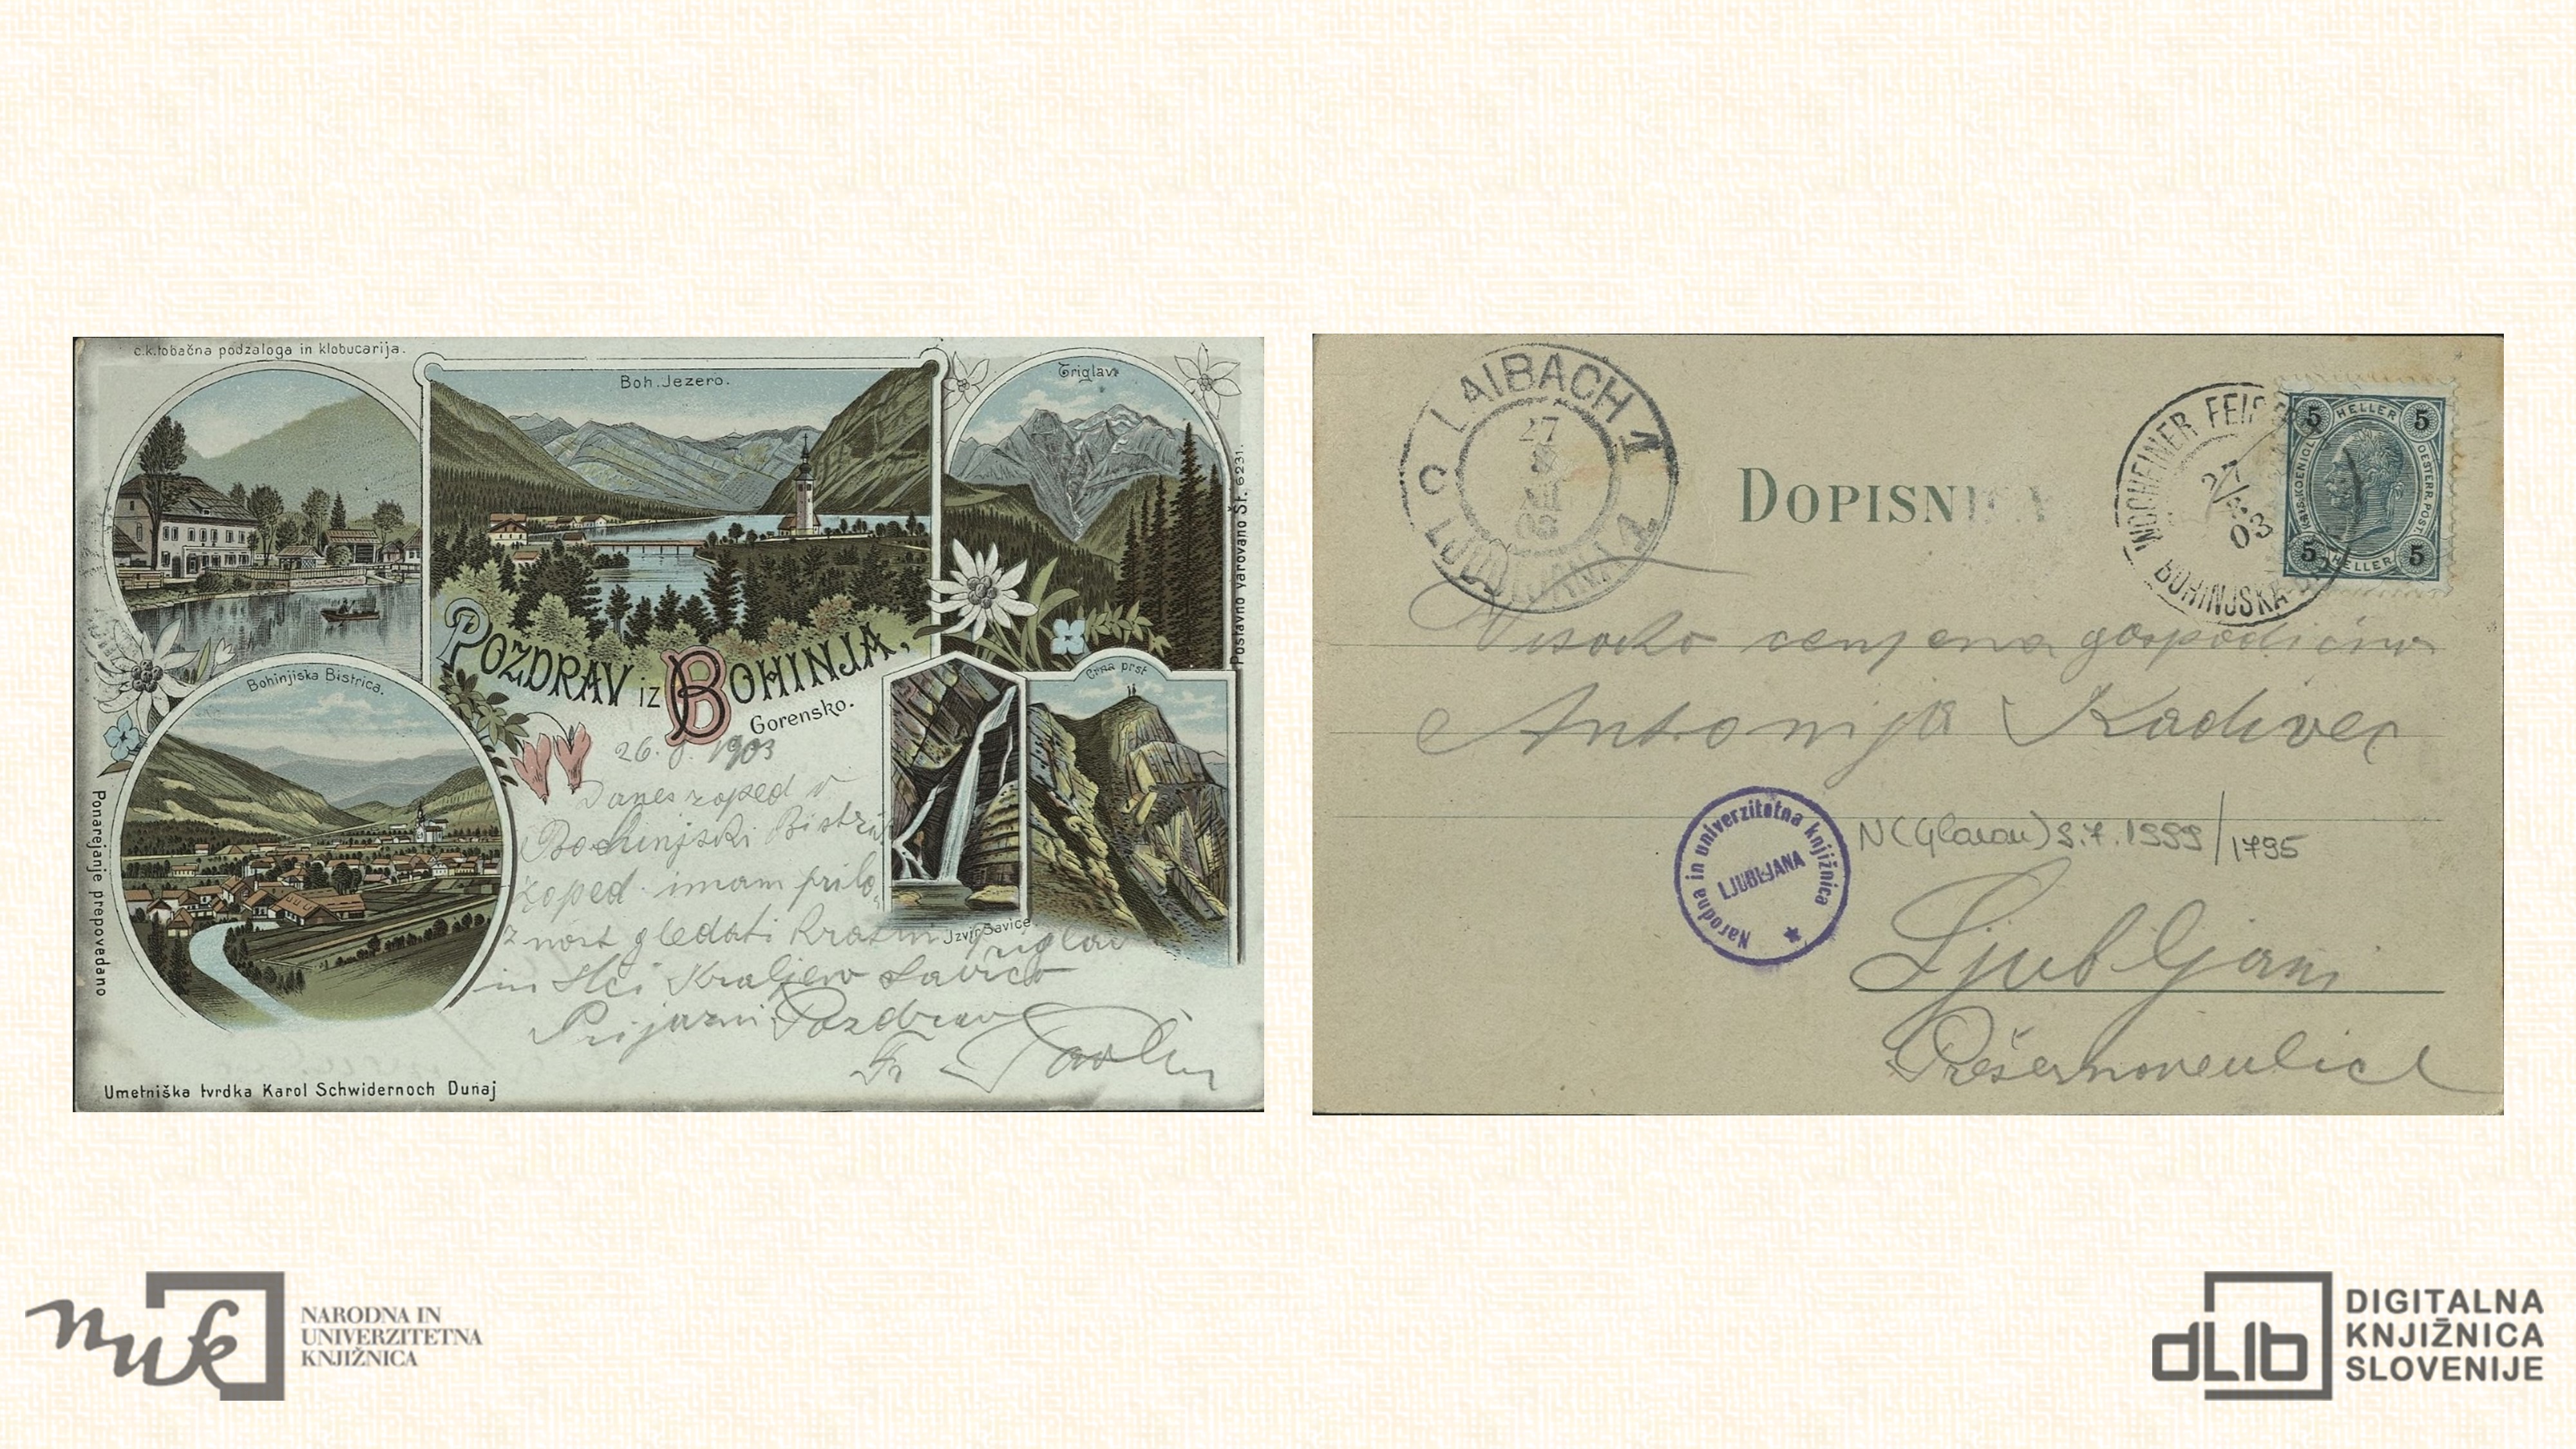 c.k.tobačna podzaloga in klobucarija.
Boh. Jezero.
Triglav.
Postavno varovano Št. 6231.
POZDRAV iz BOHINJA,
Gorensko.
Bohinjska Bistrica.
Crna prst
Jzvir Savice.
Ponarejanje prepovedano
26. 8. 1903
Danes zoped v
Bohinjski Bistri
zoped imam prilo
znost gledati krasni Triglav
in Kraljevo Savico
Prijazni Pozdrav
Fr Pavlin
Umetniška tvrdka Karol Schwidernoch Dunaj
LAIBACH 1
LJUBLJANA
27
03
DOPISNICA
WOCHEINER FEIS
27
03
BOHINJSKA
5 HELLER 5
KAIS.KOENIGL.
OESTERR.POST.
5 HELLER 5
Visoko cenjena gospodična
Antonija Kadivec
Narodna in univerzitetna knjižnica
LJUBLJANA
N 9.7.1999/1795
Ljubljani
Prešernove ulice
nuk
NARODNA IN
UNIVERZITETNA
KNJIŽNICA
dLib
DIGITALNA
KNJIŽNICA
SLOVENIJE